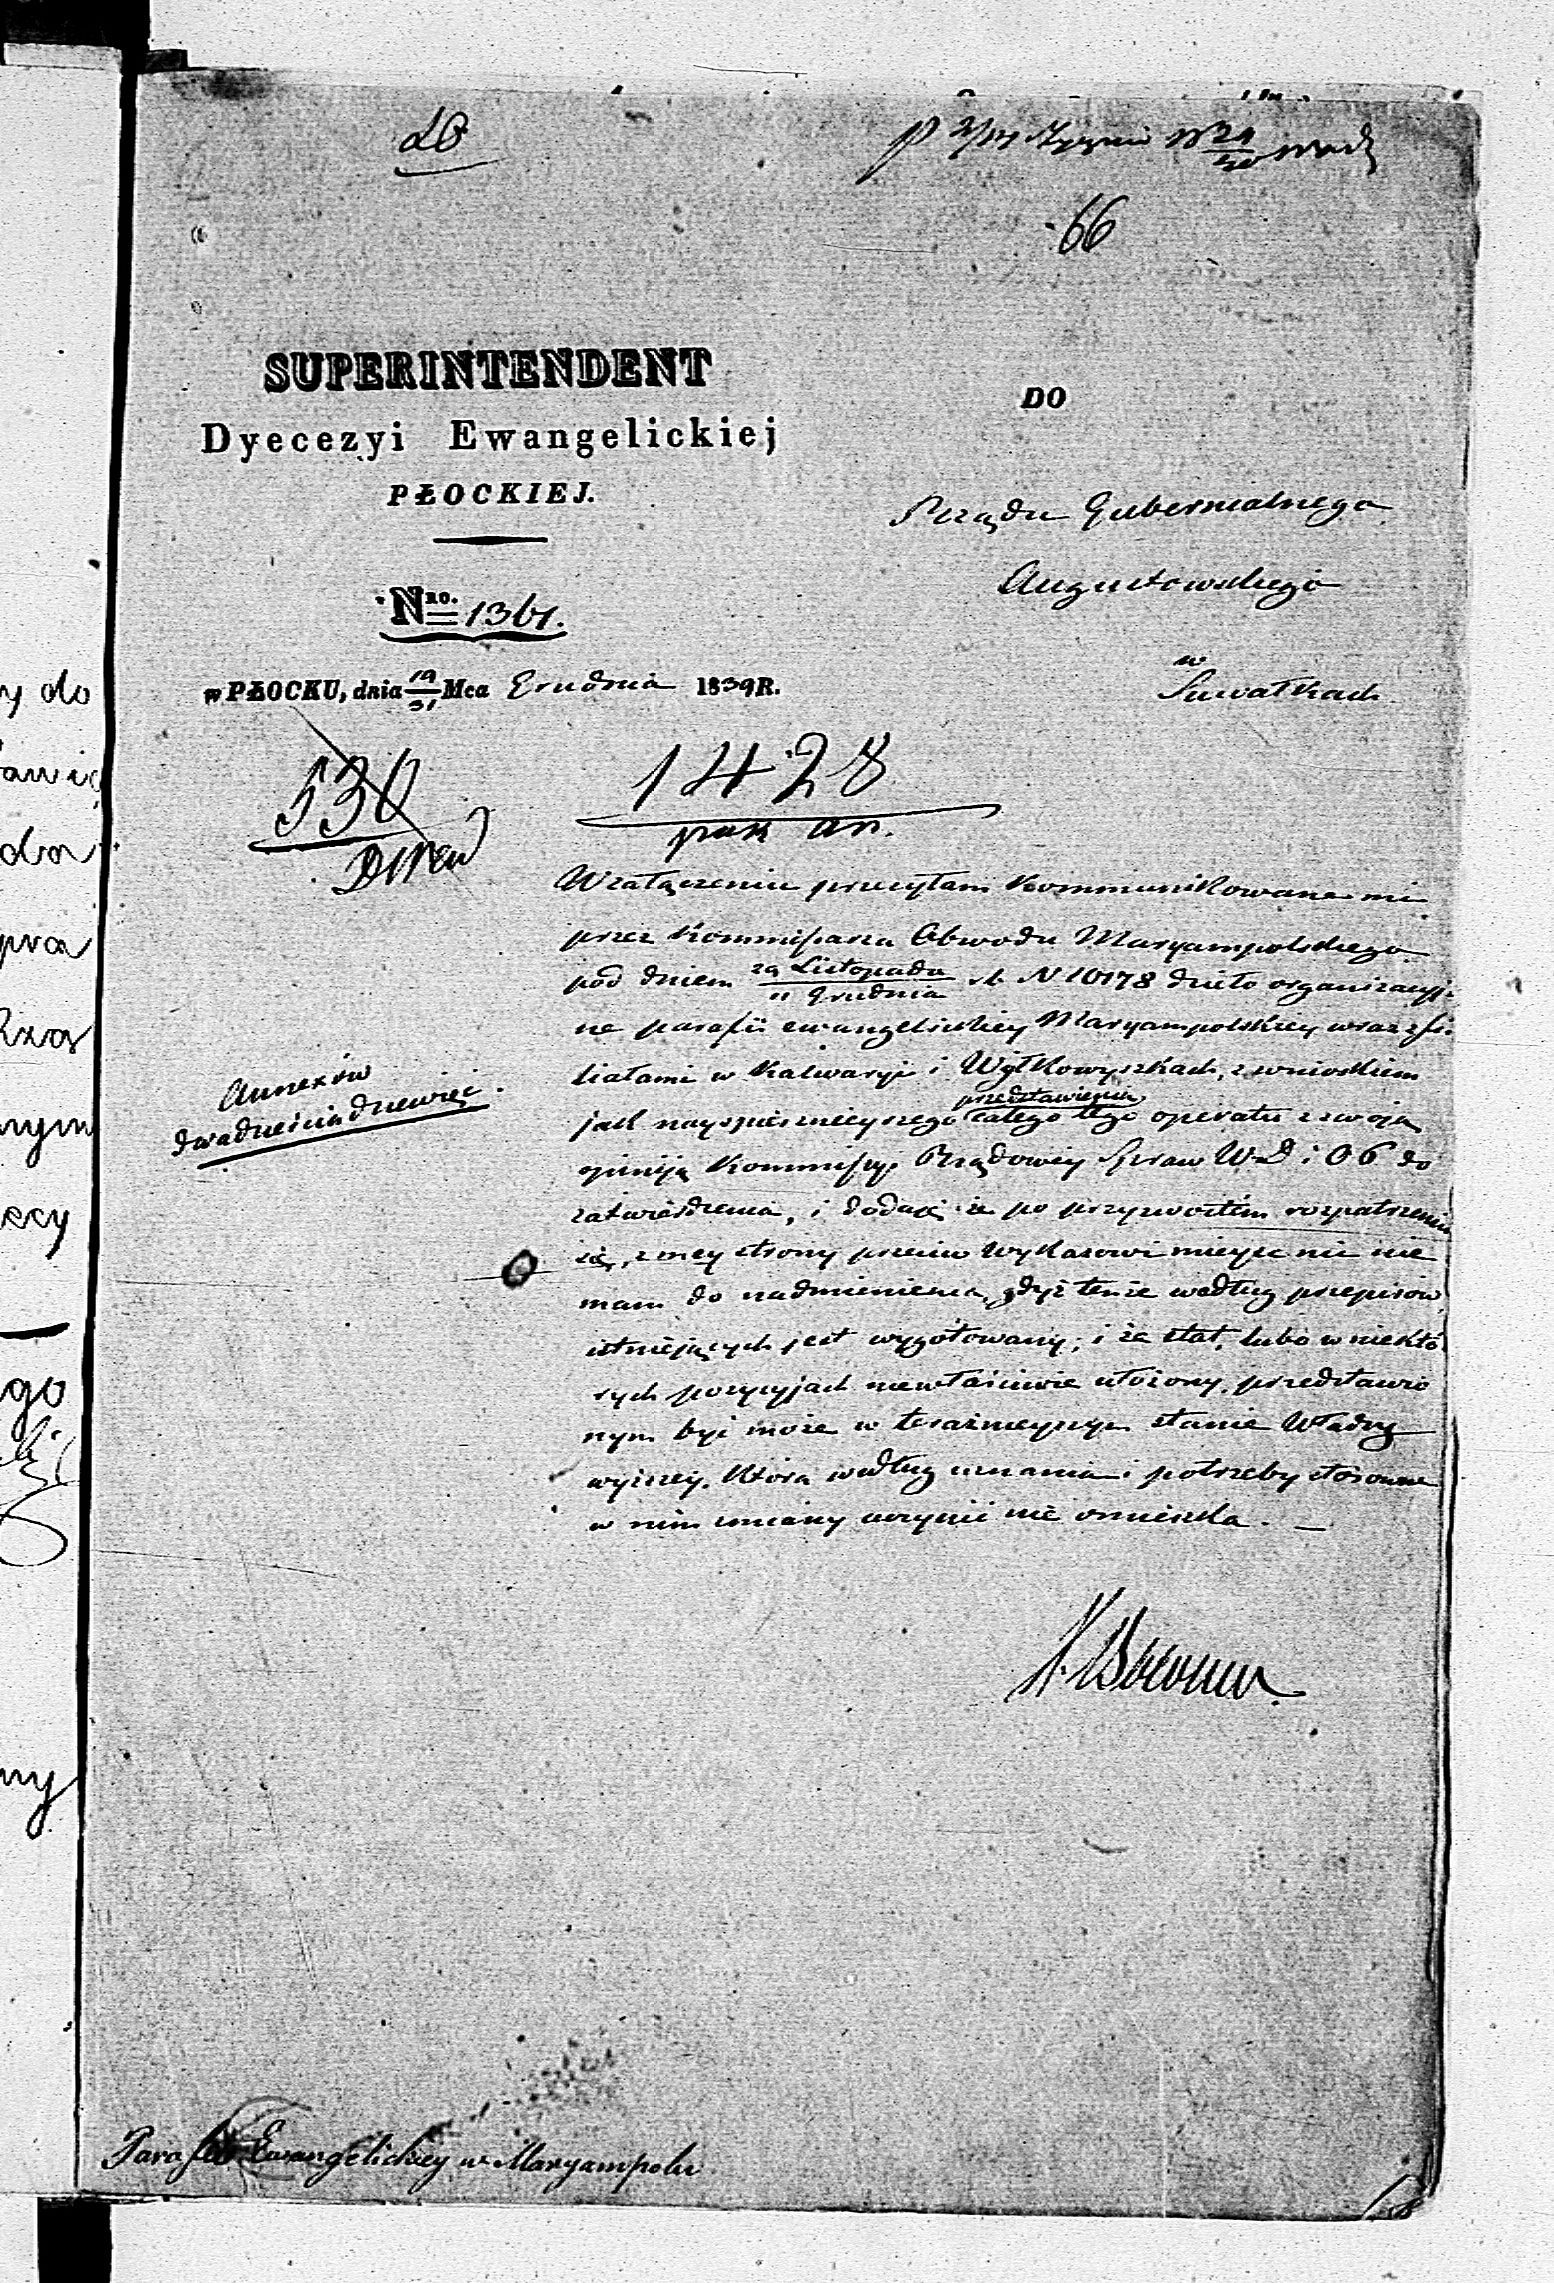 66
SUPERINTENDENT
Dyecezyi Ewangelickiej
PŁOCKIEJ.
Nro. 1361.
w PŁOCKU, dnia 19/31 Mca Grudnia 1839 R.
DO
Rządu Gubernialnego
Augustowskiego
w
Suwałkach
530
1428
W załączeniu przesyłam kommunikowane mi
przez Kommissarza Obwodu Maryampolskiego
pod dniem 29 Listopada / 11 Grudnia N 10178 dzieło organizacyj-
ne parafii ewangelickiey Maryampolskiey wraz z fi-
liałami w Kalwaryi i Wyłkowyszkach, z wnioskiem
przedstawienia
jak nayspiesznieyszego całego tego operatu z swoją
opiniją Kommissyi Rządowey Spraw W D i O6 do
zatwierdzenia, i dodaję że po przyzwoitém rozpatrzeniu
się, z mey strony przeciw wykazowi mieysc nic nie
mam do nadmienienia, gdyż tenże według przepisów
istniejących jest wygotowany; i że etat, lubo w niektó-
rych pozycyjach niewłaściwie ułożony, przedstawio
nym być może w teraźnieyszym stanie Władzy
wyższey, która według uznania i potrzeby stosowne
w nim zmiany uczynić nie omieszka. —
Annexów
dwadzieścia dziewięć.
Parafii Ewangelickiey w Maryampolu